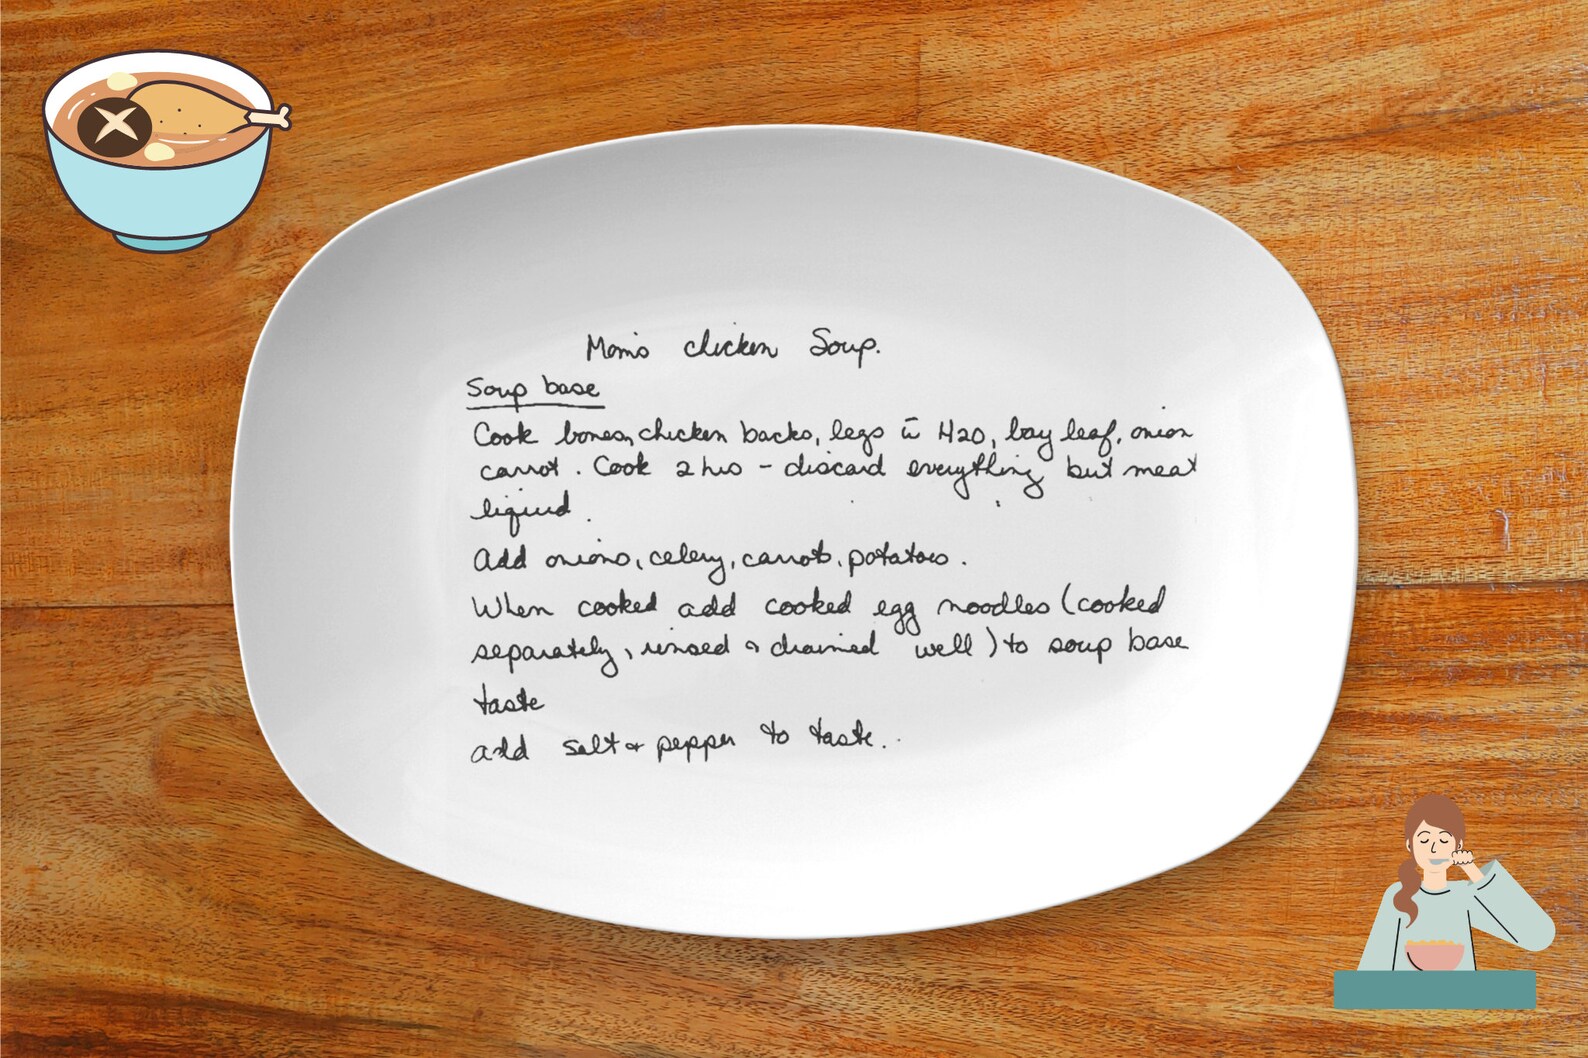 Mom's chicken Soup.
Soup base
Cook bones, chicken backs, legs c̄ H2O, bay leaf, onion
carrot. Cook 2 hrs - discard everything but meat
liquid.
Add onions, celery, carrots, potatoes.
When cooked add cooked egg noodles (cooked
separately, rinsed & drained well) to soup base
taste
add salt & pepper to taste.